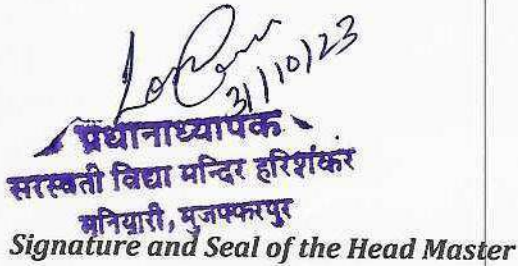 31/10/23
प्रधानाध्यापक
सरस्वती विद्या मन्दिर हरिशंकर
मनियारी, मुजफ्फरपुर
Signature and Seal of the Head Master